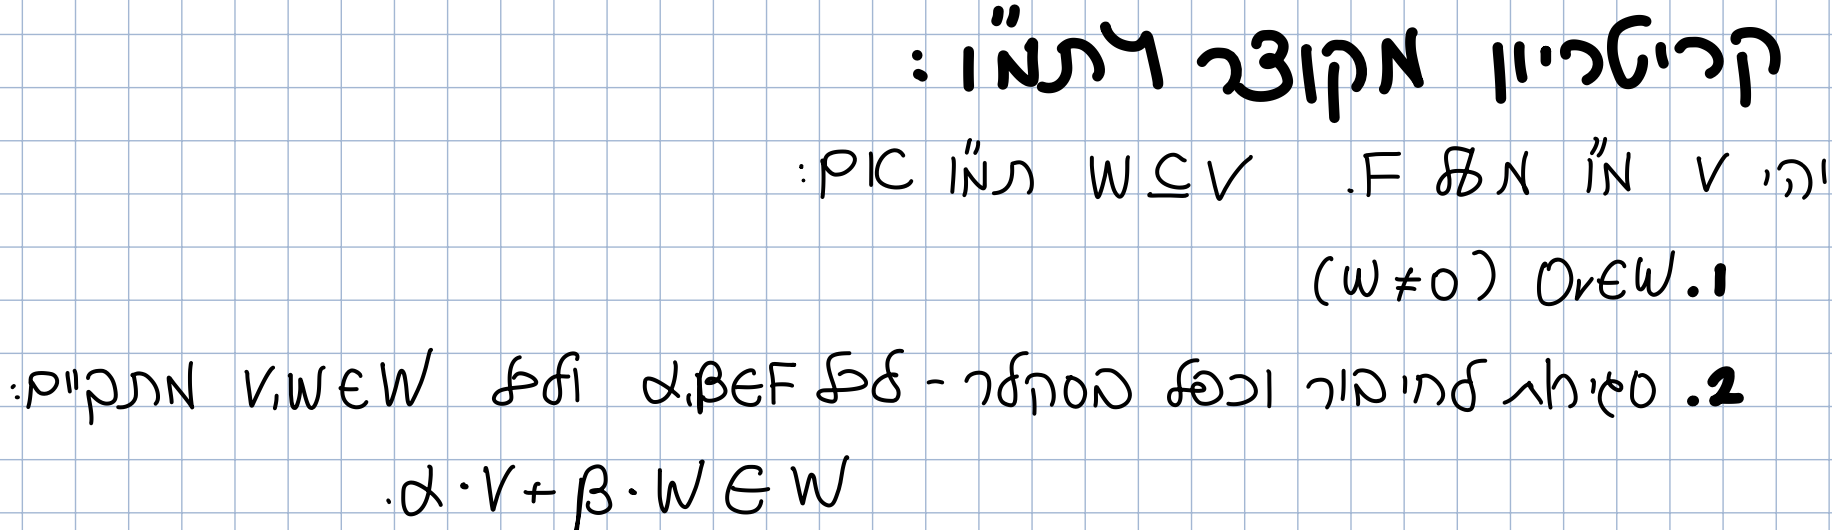 קריטריון מקוצר לתמ"ו:
יהי V מ"ו מעל F. W⊆V תמ"ו אם:
1. 0v∈W (W≠0)
2. סגירות לחיבור וכפל בסקלר - לכל α,β∈F ולכל v,w∈W מתקיים:
α·v+β·w∈W.